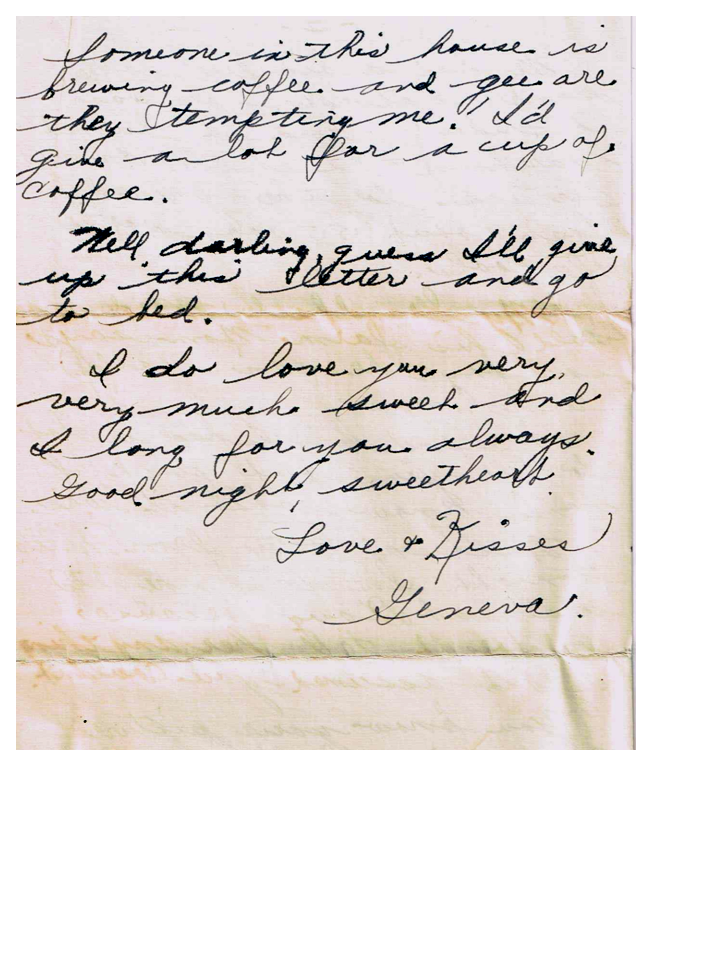 Someone in this house is
brewing coffee and gee are
they tempting me. I'd
give a lot for a cup of
coffee.
Well darling, guess I'll give
up this letter and go
to bed.
I do love you very,
very much sweet and
I long for you always.
Good night, sweetheart.
Love & Kisses
Geneva.